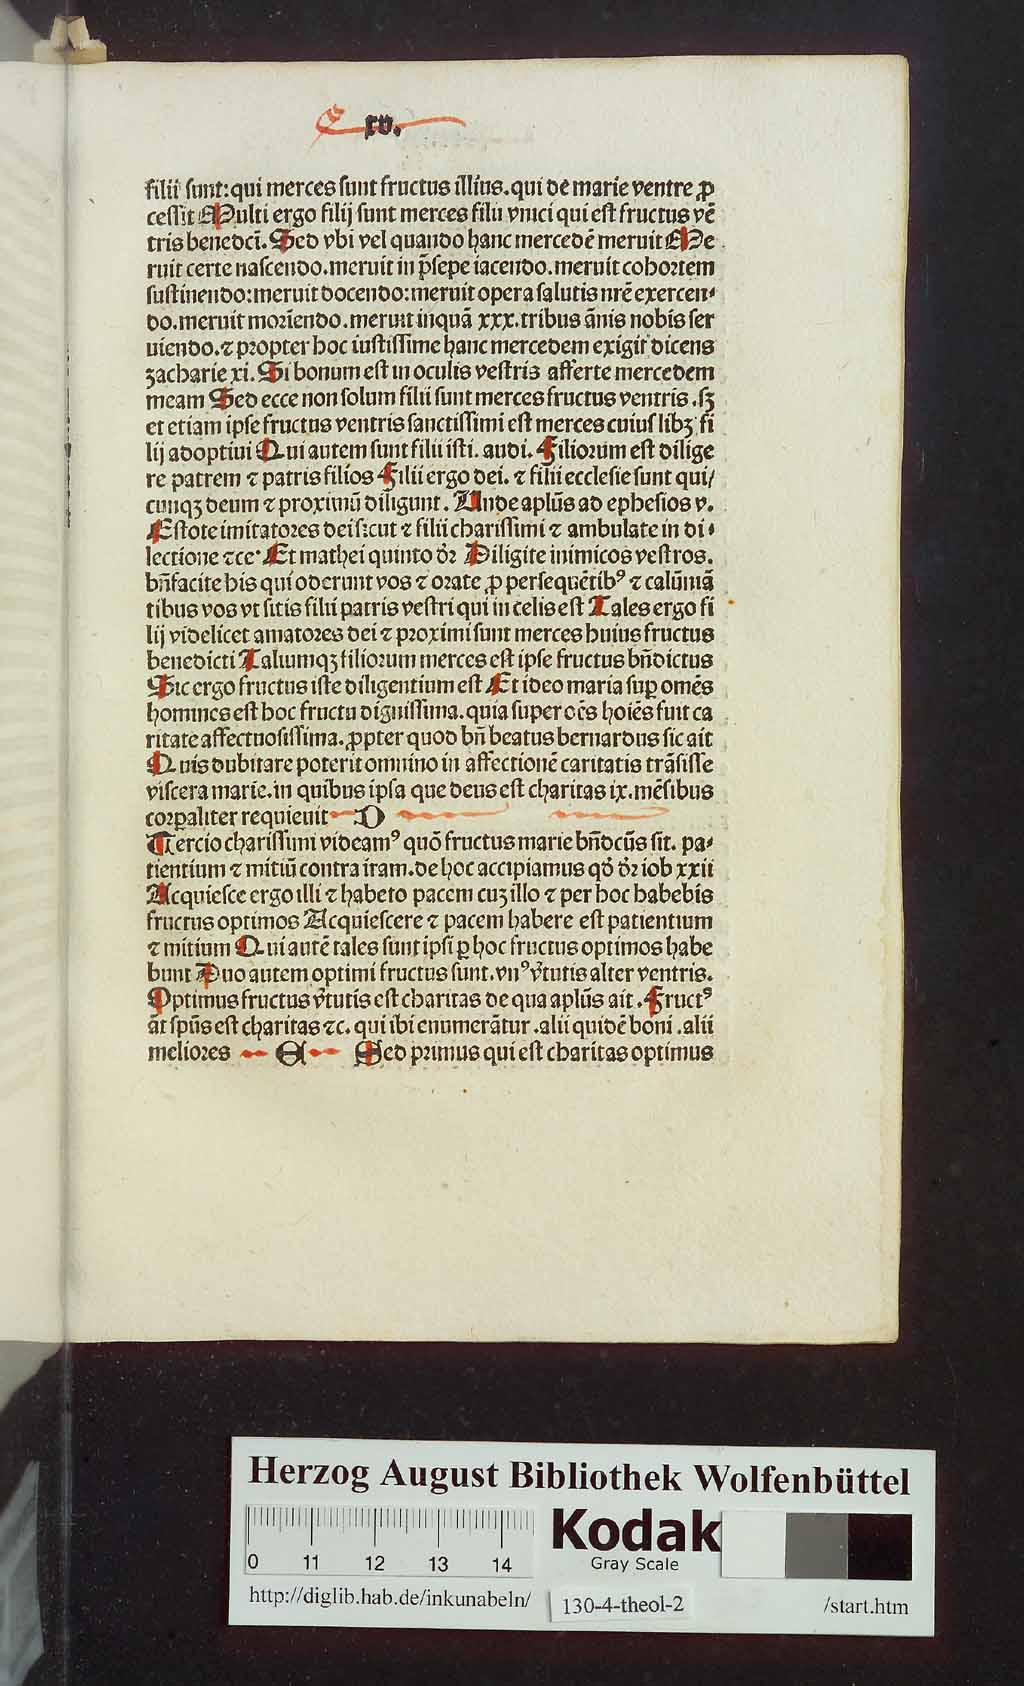 xv.
filii sunt: qui merces sunt fructus illius. qui de marie ventre ꝓ
cessit Multi ergo filij sunt merces filii vnici qui est fructus vē
tris benedcī. Sed vbi vel quando hanc mercedē meruit Me
ruit certe nascendo. meruit in p̄sepe iacendo. meruit cohortem
sustinendo: meruit docendo: meruit opera salutis nrē exercen⸗
do. meruit moriendo. meruit inquā xxx. tribus ānis nobis ser
uiendo. ⁊ propter hoc iustissime hanc mercedem exigit dicens
zacharie xi. Si bonum est in oculis vestris afferte mercedem
meam Sed ecce non solum filii sunt merces fructus ventris. sꝫ
et etiam ipse fructus ventris sanctissimi est merces cuiuslibꝫ fi
lij adoptiui Qui autem sunt filii isti. audi. Filiorum est dilige
re patrem ⁊ patris filios Filii ergo dei. ⁊ filii ecclesie sunt qui/
cunqꝫ deum ⁊ proximū diligunt. Unde aplūs ad ephesios v.
Estote imitatores dei sicut ⁊ filii charissimi ⁊ ambulate in di⸗
lectione ⁊ce. Et mathei quinto dr̄ Diligite inimicos vestros.
bn̄facite his qui oderunt vos ⁊ orate ꝓ persequētibꝰ ⁊ calūmā
tibus vos vt sitis filii patris vestri qui in celis est Tales ergo fi
lij videlicet amatores dei ⁊ proximi sunt merces huius fructus
benedicti Taliumqꝫ filiorum merces est ipse fructus bn̄dictus
Sic ergo fructus iste diligentium est Et ideo maria suꝑ omēs
homines est hoc fructu dignissima. quia super oēs hoiēs fuit ca
ritate affectuosissima. ꝓpter quod bn̄ beatus bernardus sic ait
Quis dubitare poterit omnino in affectionē caritatis trāsisse
viscera marie. in quibus ipsa que deus est charitas ix. mēsibus
corꝑaliter requieuit D
Tercio charissimi videamꝰ quō fructus marie bn̄dcūs sit. pa⸗
tientium ⁊ mitiū contra iram. de hoc accipiamus qd̄ dr̄ iob xxii
Acquiesce ergo illi ⁊ habeto pacem cuꝫ illo ⁊ per hoc habebis
fructus optimos Acquiescere ⁊ pacem habere est patientium
⁊ mitium Qui autē tales sunt ipsi ꝑ hoc fructus optimos habe
bunt Duo autem optimi fructus sunt. vnꝰ v̄tutis alter ventris.
Optimus fructus v̄tutis est charitas de qua aplūs ait. Fructꝰ
āt spūs est charitas ⁊c. qui ibi enumerātur. alii quidē boni. alii
meliores E Sed primus qui est charitas optimus
Herzog August Bibliothek Wolfenbüttel
0 11 12 13 14
Kodak
Gray Scale
http://diglib.hab.de/inkunabeln/ 130-4-theol-2 /start.htm